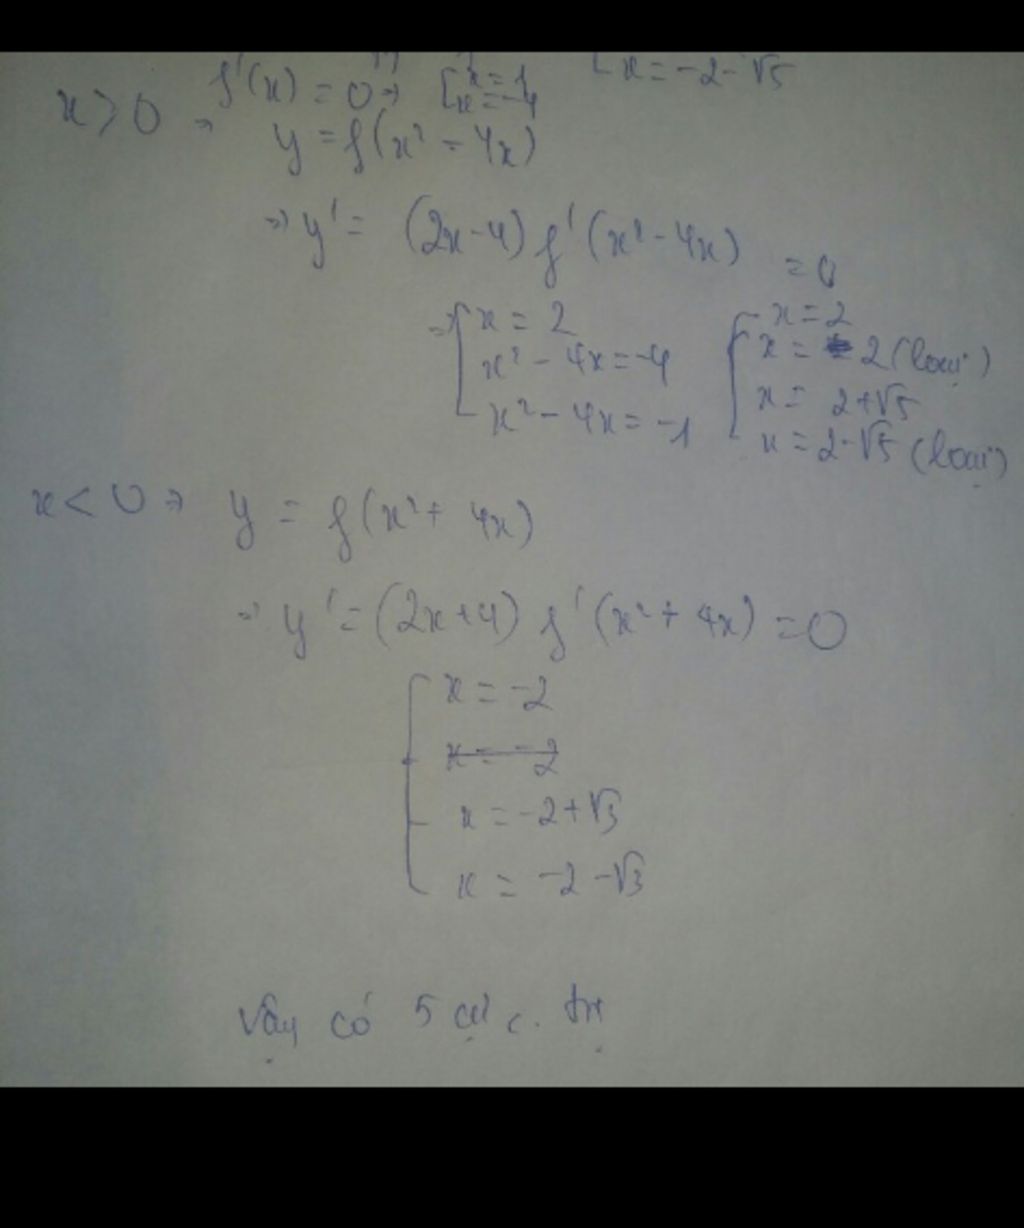 x = -2-√5
f'(x) = 0 → [x = 1
x = -4
x > 0 → y = f(x² - 4x)
→ y' = (2x-4) f'(x² - 4x) = 0
→ [x = 2
x² - 4x = -4
x² - 4x = -1
[x = 2
x = 2 (loại)
x = 2+√5
x = 2-√5 (loại)
x < 0 → y = f(x² + 4x)
→ y' = (2x+4) f'(x² + 4x) = 0
[x = -2
x = -2
x = -2+√3
x = -2-√3
Vậy có 5 cực trị